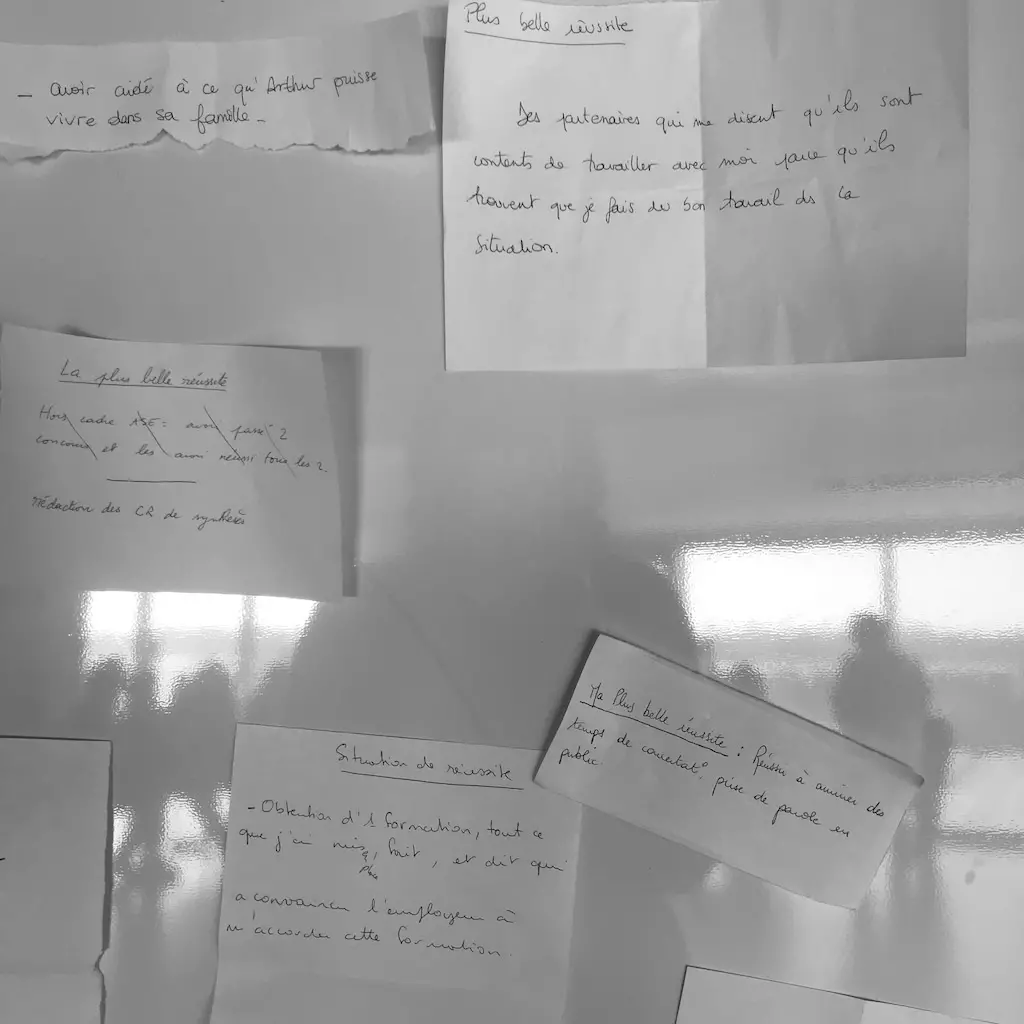 - avoir aidé à ce qu'Arthur puisse
vivre dans sa famille -
Plus belle réussite
Des partenaires qui me disent qu'ils sont
contents de travailler avec moi parce qu'ils
trouvent que je fais du bon travail ds la
situation.
La plus belle réussite
Hors cadre ASE : avoir passé 2
concours et les avoir réussi tous les 2
rédaction des CR de synthèses
Ma Plus belle réussite : Réussir à animer des
temps de concertat°, prise de parole en
public.
Situation de réussite
- Obtention d'1 formation, tout ce
que j'ai mis, fait, et dit qui
a convaincu l'employeur à
m'accorder cette formation.